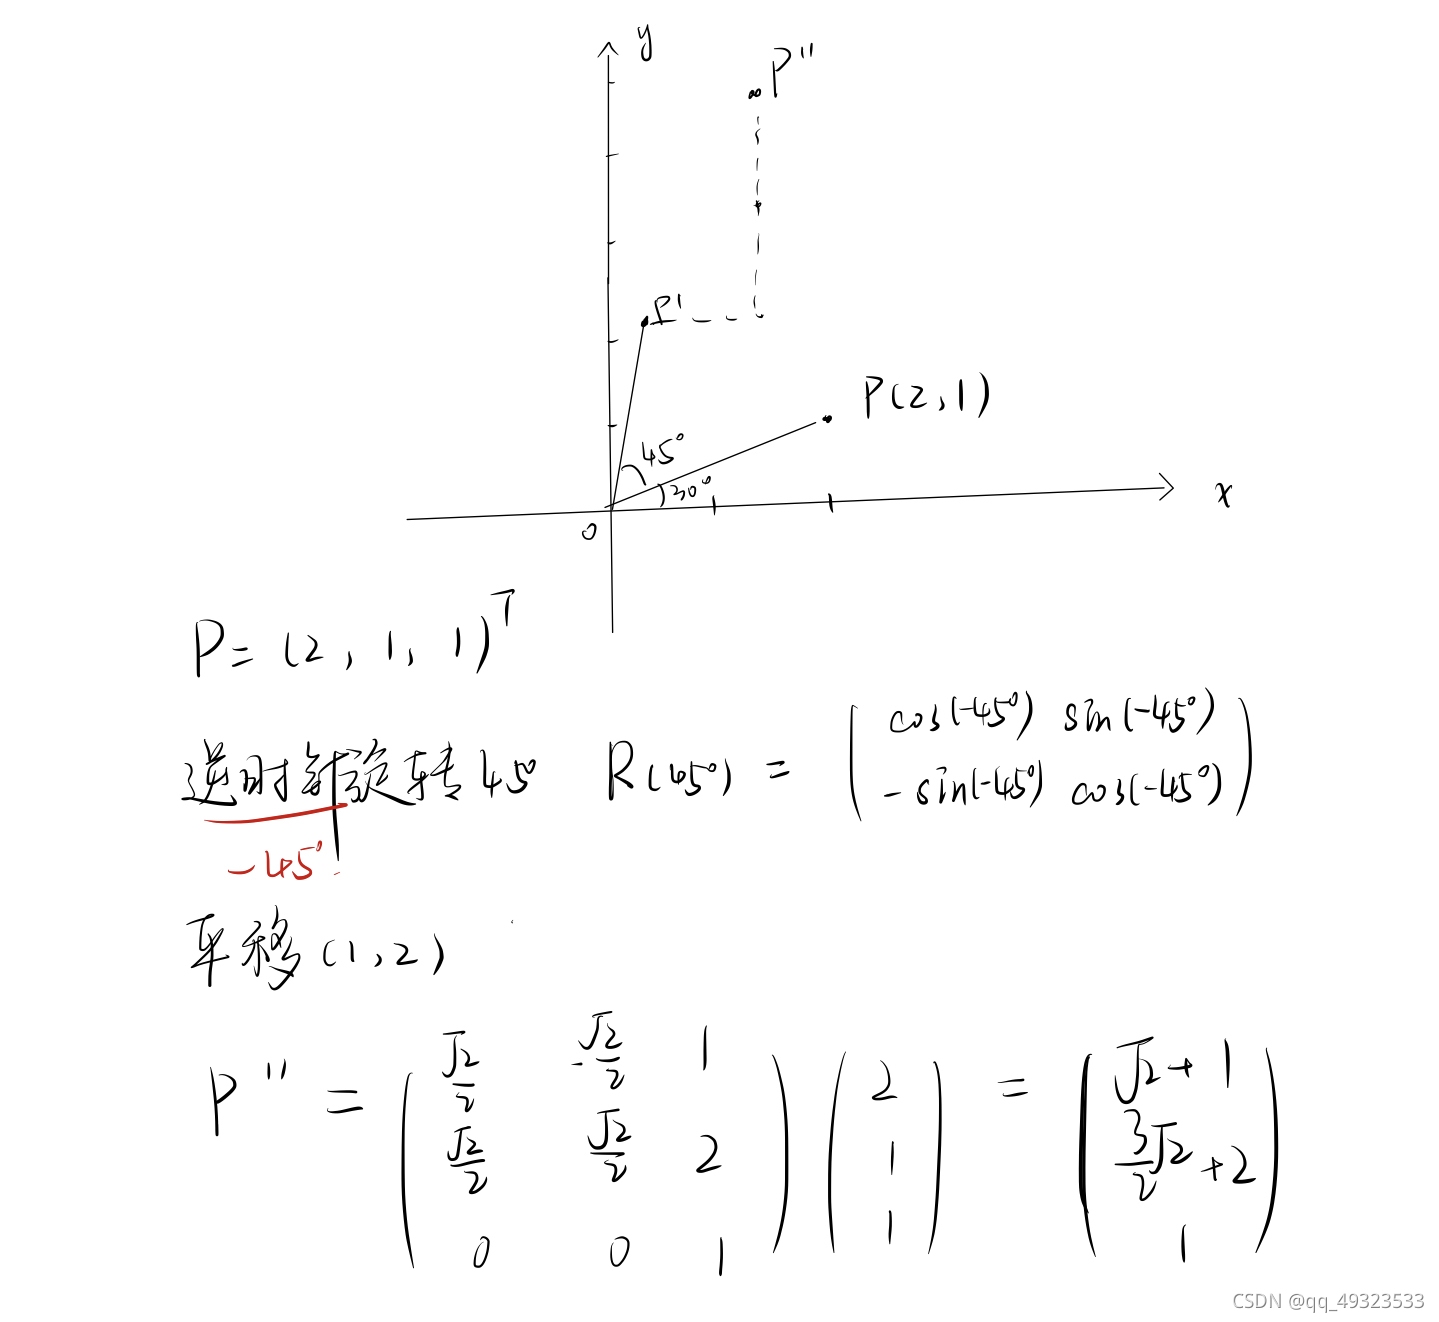 y
P''
P'
P(2,1)
45°
30°
x
0
P = (2, 1, 1)^T
逆时针旋转45° R(45°) = ( cos(-45°) sin(-45°)
-sin(-45°) cos(-45°) )
-45°
平移(1,2)
P'' = ( √2/2 -√2/2 1 ) ( 2 ) = ( √2+1 )
( √2/2 √2/2 2 ) ( 1 ) ( 3/2√2+2 )
( 0 0 1 ) ( 1 ) ( 1 )
CSDN @qq_49323533